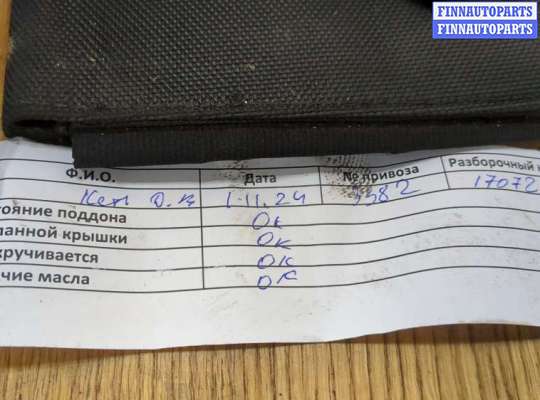 FINNAUTOPARTS
FINNAUTOPARTS
Ф.И.О. Дата № привоза Разборочный
1.11.24 3382 17072
тояние поддона Ок
панной крышки Ок
кручивается Ок
чие масла Ок